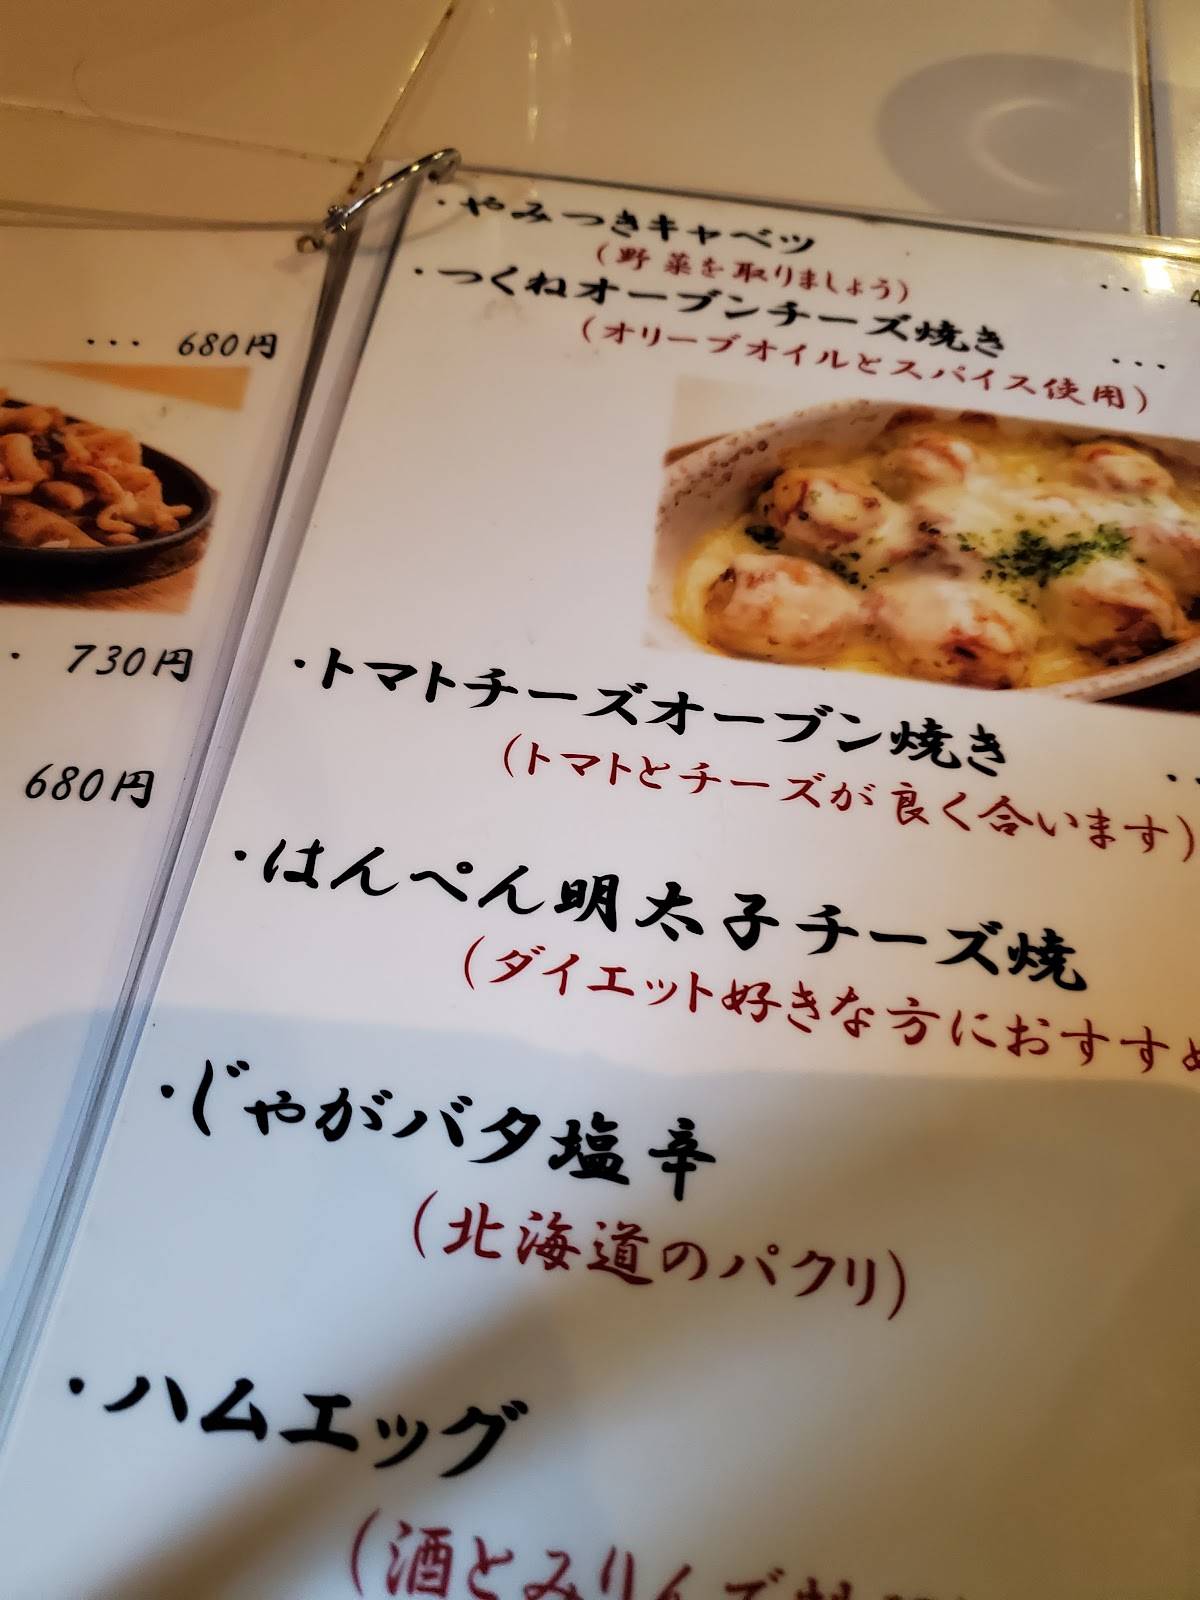 ... 680円
・ 730円
680円
・やみつきキャベツ
(野菜を取りましょう)
... 4
・つくねオーブンチーズ焼き
...
(オリーブオイルとスパイス使用)
・トマトチーズオーブン焼き
(トマトとチーズが良く合います)
・はんぺん明太子チーズ焼
(ダイエット好きな方におすすめ
・じゃがバタ塩辛
(北海道のパクリ)
・ハムエッグ
(酒とみりんで